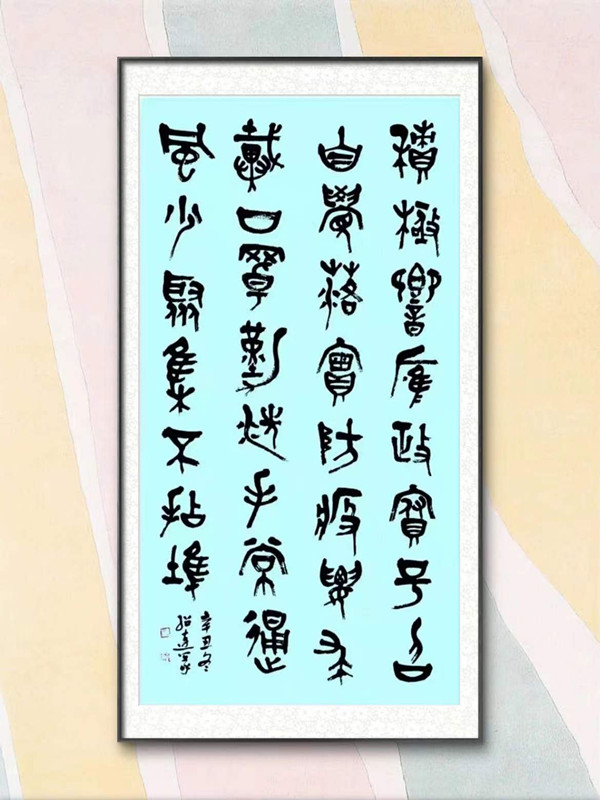 積極響應政府号召
自覺落實防疫要求
戴口罩勤洗手常通
風少聚集不扎堆
辛丑冬